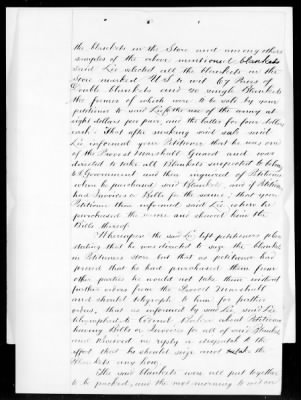 the blankets in the Store and among others
samples of the above mentioned blankets
said Lee selected all the blankets in the
Store marked U.S. to wit 67 Pairs of
Double blankets and 20 single Blankets
the former of which were to be sold by your
petitioner to said Lee for the use of the army at
eight dollars per pair, and the latter for four dollars
each. That after making said sale said
Lee informed your Petitioner that he was one
of the Provost Marshall Guard and was
directed to take all Blankets suspected to belong
to Government and then inquired of Petitioner
where he purchased said Blankets, and if Petitioner
had Invoices or Bills for the same, that your
Petitioner then informed said Lee where he
purchased the same and showed him the
Bills thereof.
Whereupon the said Lee left petitioners place
stating that he was directed to seize the blankets
in Petitioners store but that as petitioner had
proved that he had purchased them from
other parties he would not take them without
further orders from the Provost Marshall
and should telegraph to him for further
orders, that as informed by said Lee, said Lee
telegraphed to Colonel about Petitioner
having Bills or Invoices for all of said Blankets
and received in reply a dispatch to the
effect that he should seize and take the
Blankets any how.
The said blankets were all put together
to be packed, and the next morning to